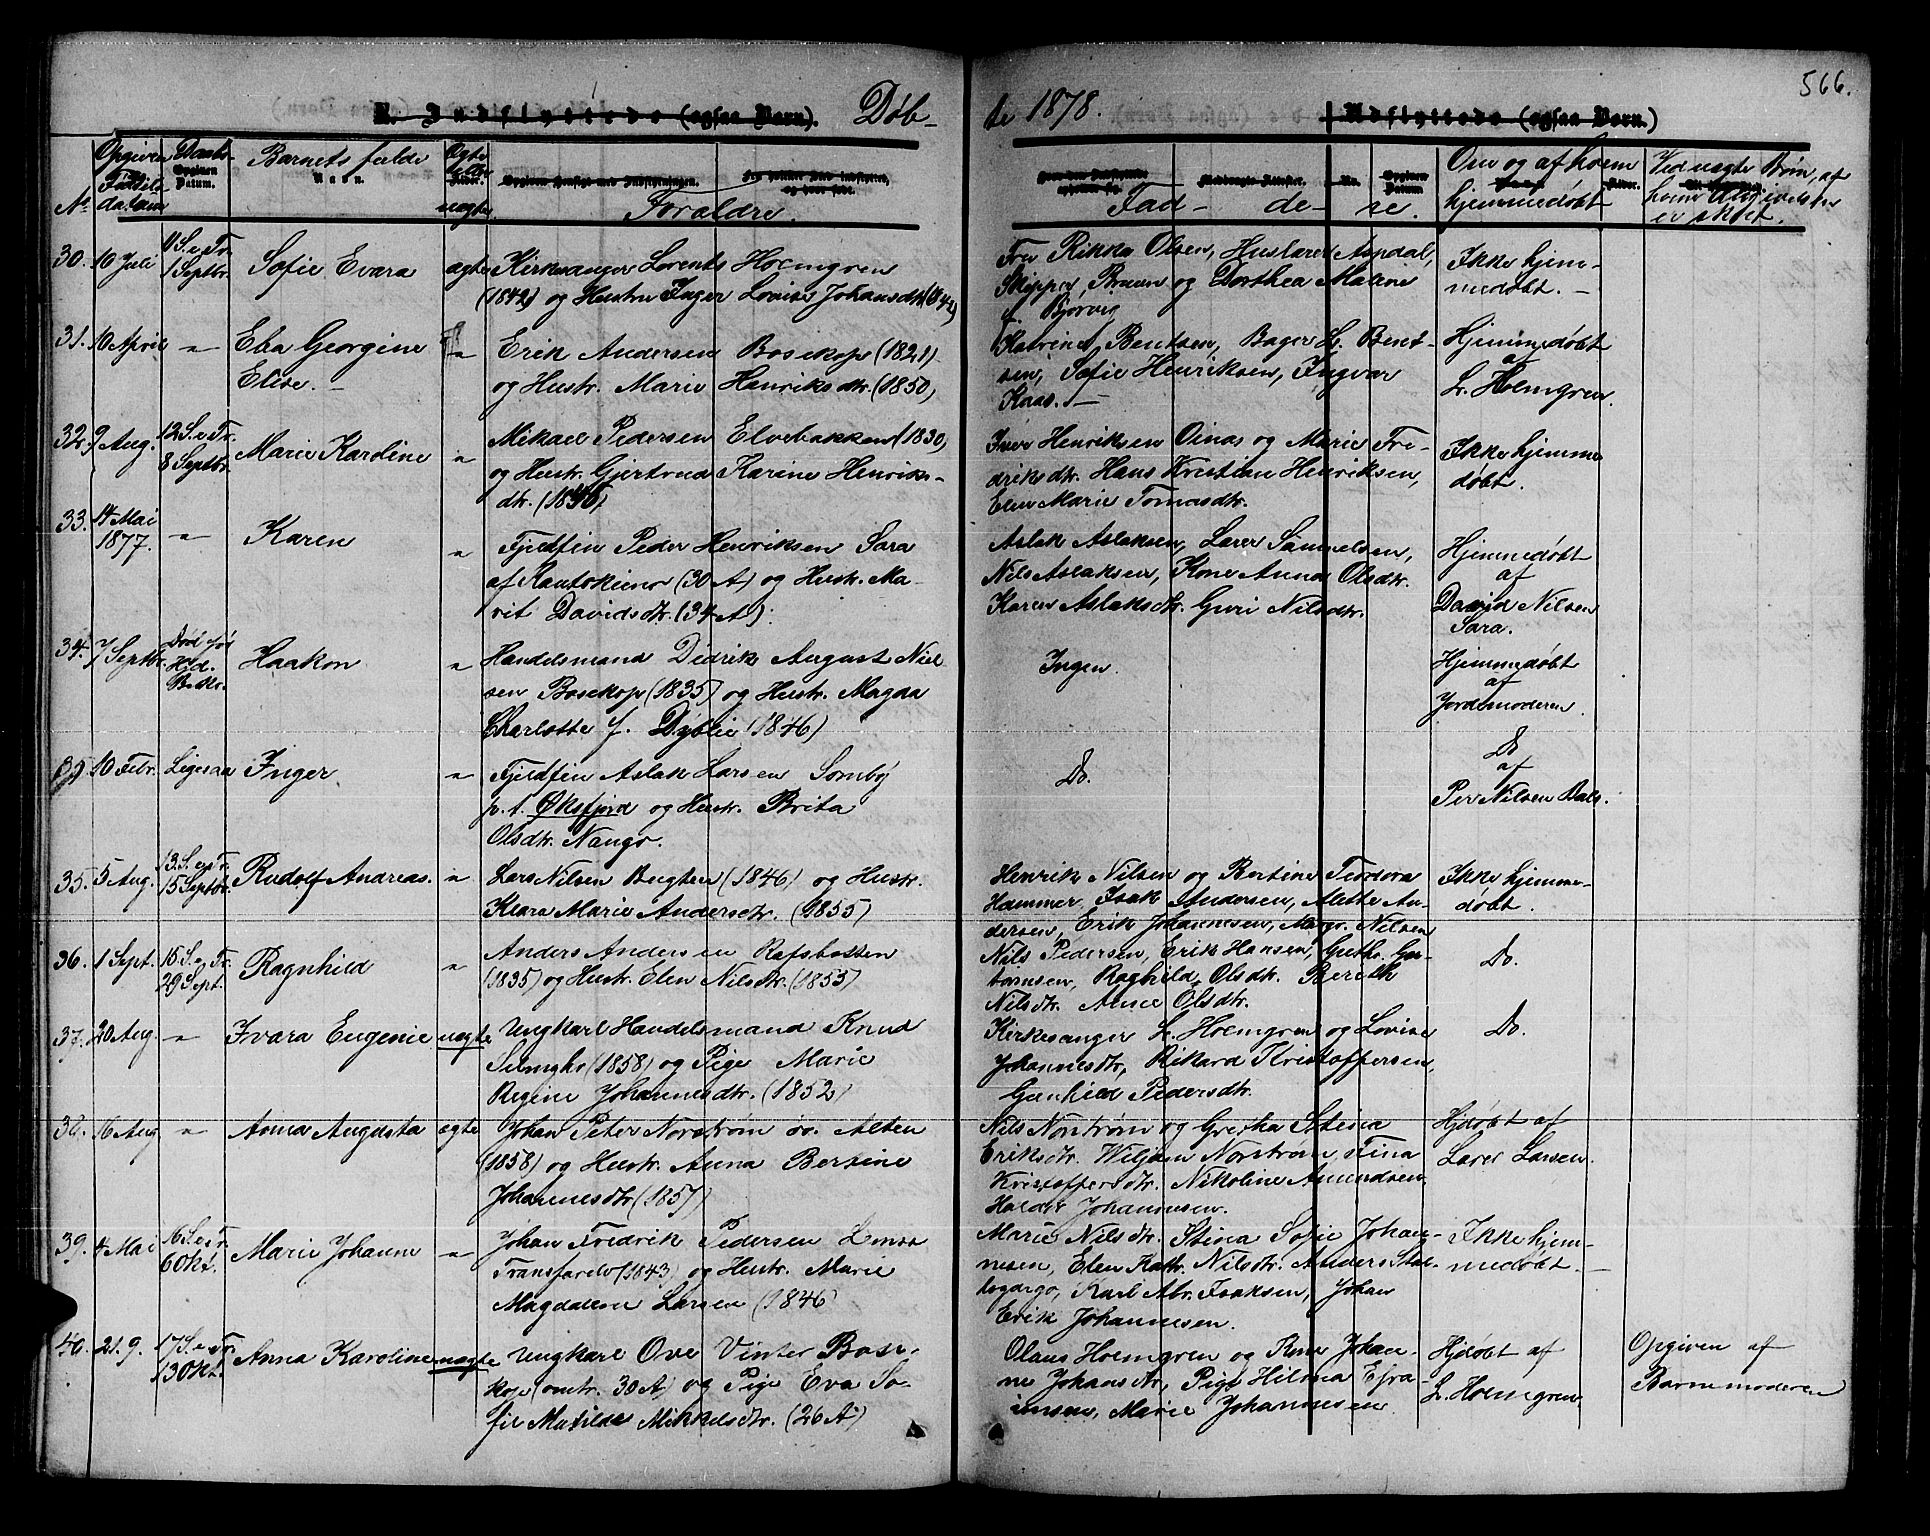 566.
K. Indflyttede (ogsaa Børn). Døb-
te 1878. Udflyttede (ogsaa Børn.)
No Opgiven Fødselsdatum Daabs- Datum. Barnets fulde Navn. Ægte eller uægte Forældre.
Fad- de- re. Om og af hvem hjemmedøbt Ved uægte Børn, af hvem Angivelsen er skeet.
30. 10 Juli 11 S. e. Tr. 1 Septbr. Sofie Evara ægte Kirkesanger Lorents Holmgren
(1842) og Hustru Inger Lovise Johansdtr (1842)
Fru Rikka Olsen, Huslærer Aspdal,
Skipper Bruun og Dorthea Maline
f. Bjørvig
Ikke hjem-
medøbt. -
31. 10 April " Eba Georgine
Elise. -
" Erik Andersen Bosekop (1821)
og Hustr. Marie Henriksdtr. (1850)
Katrine Bentsen, Bager L. Bent-
sen, Sofie Henriksen, Ingvar
Kaas. -
Hjemmedøbt
af
L. Holmgren.
32. 9 Aug. 12 S. e. Tr. 8 Septbr. Marie Karoline "
Mikael Pedersen Elvebakken (1830)
og Hustr. Gjertrud Karine Henriks-
dtr. (1836)
Iver Henriksen Oinas og Marie Fre-
driksdtr. Hans Kristian Henriksen,
Elen Marie Tomasdtr.
Ikke hjemme
døbt.
33. 14 Mai
1877. " Karen "
Fjeldfin Peder Henriksen Sara
af Kautokeino (30 A) og Hustr. Ma-
rit Davidsdtr. (34 A).
Aslak Aslaksen, Lærer Samuelsen,
Nils Aslaksen, Kone Anna Olsdtr.
Karen Aslaksdtr. Guri Nilsdtr.
Hjemmedøbt
af
David Nilsen
Sara.
34. 7 Septbr. Død før Haakon "
Handelsmand Didrik August Niel-
sen Bosekop (1835) og Hustr. Magda
Charlotte f. Dyblie (1846)
Ingen.
Hjemmedøbt
af
Jordemoderen.
10 Febr. Ligesaa Inger "
Fjeldfin Aslak Larsen Somby
p. t. Øksfjord og Hustr. Brita
Olsdtr. Nango.
Do.
Do
af
Per Nilsen Bals.
35. 5 Aug. 13. S. e. Tr. 15 Septbr. Rudolf Andreas. "
Lars Nilsen Bugten (1846) og Hustr.
Klara Marie Andersdtr. (1855)
Henrik Nilsen og Bertine Teodora
Hammer, Isak Andersen, Alette An-
dersen, Erik Johannesen, Margr. Nilsen
Ikke hjemme-
døbt.
36. 1 Sept. 15 S. e. Tr. 29 Sept. Ragnhild "
Anders Andersen Rafsbotten
(1835) og Hustr. Elen Nilsdtr. (1853)
Nils Pedersen, Erik Hansen,
Raghild Olsdtr. Bereth
Nilsdtr. Anne Olsdtr.
Do.
37. 20 Aug. " Ivara Eugenie uægte
Ungkarl Handelsmand Knud
(1858) og Pige Marie
Regine Johannesdtr. (1852)
Kirkesanger L. Holmgren og Lovise
Johannesdtr, Rikard Kristoffersen,
Gunhild Pedersdtr.
Do.
38. 16 Aug " Anna Augusta ægte
Johan Peter Norstrøm øv. Alten
(1858) og Hustr. Anna Bersine
Johannesdtr (1857)
Nils Norstrøm og Gretha Stina
Eriksdtr. Wiljam Norstrøm Tina
Kristoffersdtr. Nikoline Amundsen,
Haldis Johannesen.
Hjdøbt af
Lærer Larsen.
39. 4 Mai 16 S. e. Tr. 6 Okt. Marie Johanne "
Johan Fredrik Pedersen
Transfarelv (1843) og Hustr. Marie
Magdalena Larsen (1846)
Marie Nilsdtr. Stina Sofie Johan-
nesen, Elen Katr. Nilsdtr. Anders
Karl Abr. Isaksen, Johan
Erik Johannesen.
Ikke hjem-
medøbt. -
40. 21. 9. 17 S. e. Tr. 13 Okt. Anna Karoline uægte
Ungkarl Ove Vinter Bose-
kop (omtr. 30 A) og Pige Eva So-
fie Matilde Mikkelsdtr. (26 A)
Olaus Holmgren og Johan-
ne Johansdtr, Pige Hilma Efra-
imsen, Marie Johannesen.
Hjdøbt af
L. Holmgren
Opgiven af
Barnemoderen